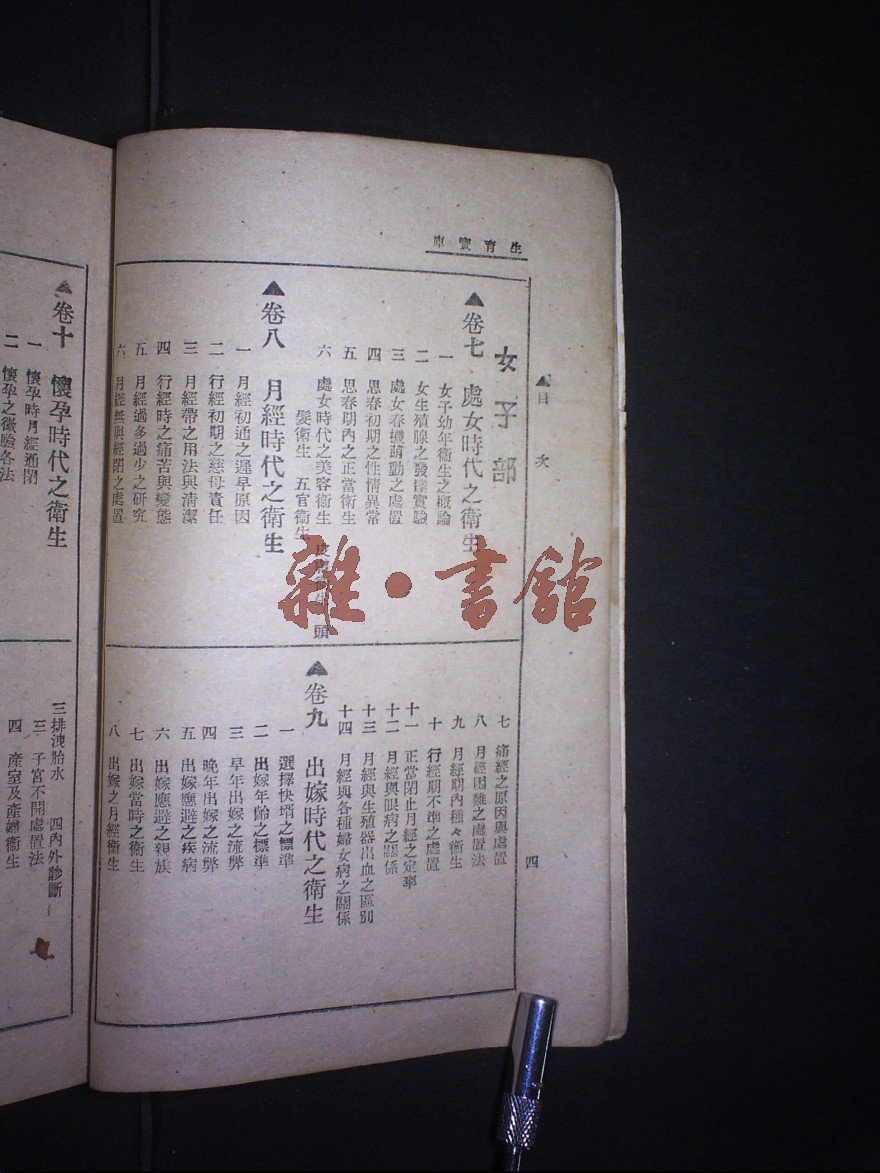 生育寶庫
▲目 次
女子部
▲卷七 處女時代之衛生
一 女子幼年衛生之概論
二 女生殖腺之發達實驗
三 處女春機萌動之處置
四 思春初期之性情異常
五 思春期內之正當衛生
六 處女時代之美容衛生 頭
髮衛生 五官衛生
▲卷八 月經時代之衛生
一 月經初通之遲早原因
二 行經初期之慈母責任
三 月經帶之用法與清潔
四 行經時之痛苦與變態
五 月經過多過少之研究
六 月經無與經閉之處置
七 痛經之原因與處置
八 月經困難之處置法
九 月經期內種々衛生
十 行經期不準之處置
十一 正當閉止月經之定率
十二 月經與眼病之關係
十三 月經與生殖器出血之區別
十四 月經與各種婦女病之關係
▲卷九 出嫁時代之衛生
一 選擇快壻之標準
二 出嫁年齡之標準
三 早年出嫁之流弊
四 晚年出嫁之流弊
五 出嫁應避之疾病
六 出嫁應避之親族
七 出嫁當時之衛生
八 出嫁之月經衛生
四
▲卷十 懷孕時代之衛生
一 懷孕時月經通閉
二 懷孕之徵驗各法
三排洩胎水 四內外診斷
三 子宮不開處置法
四 產室及產婦衛生
雜·書館